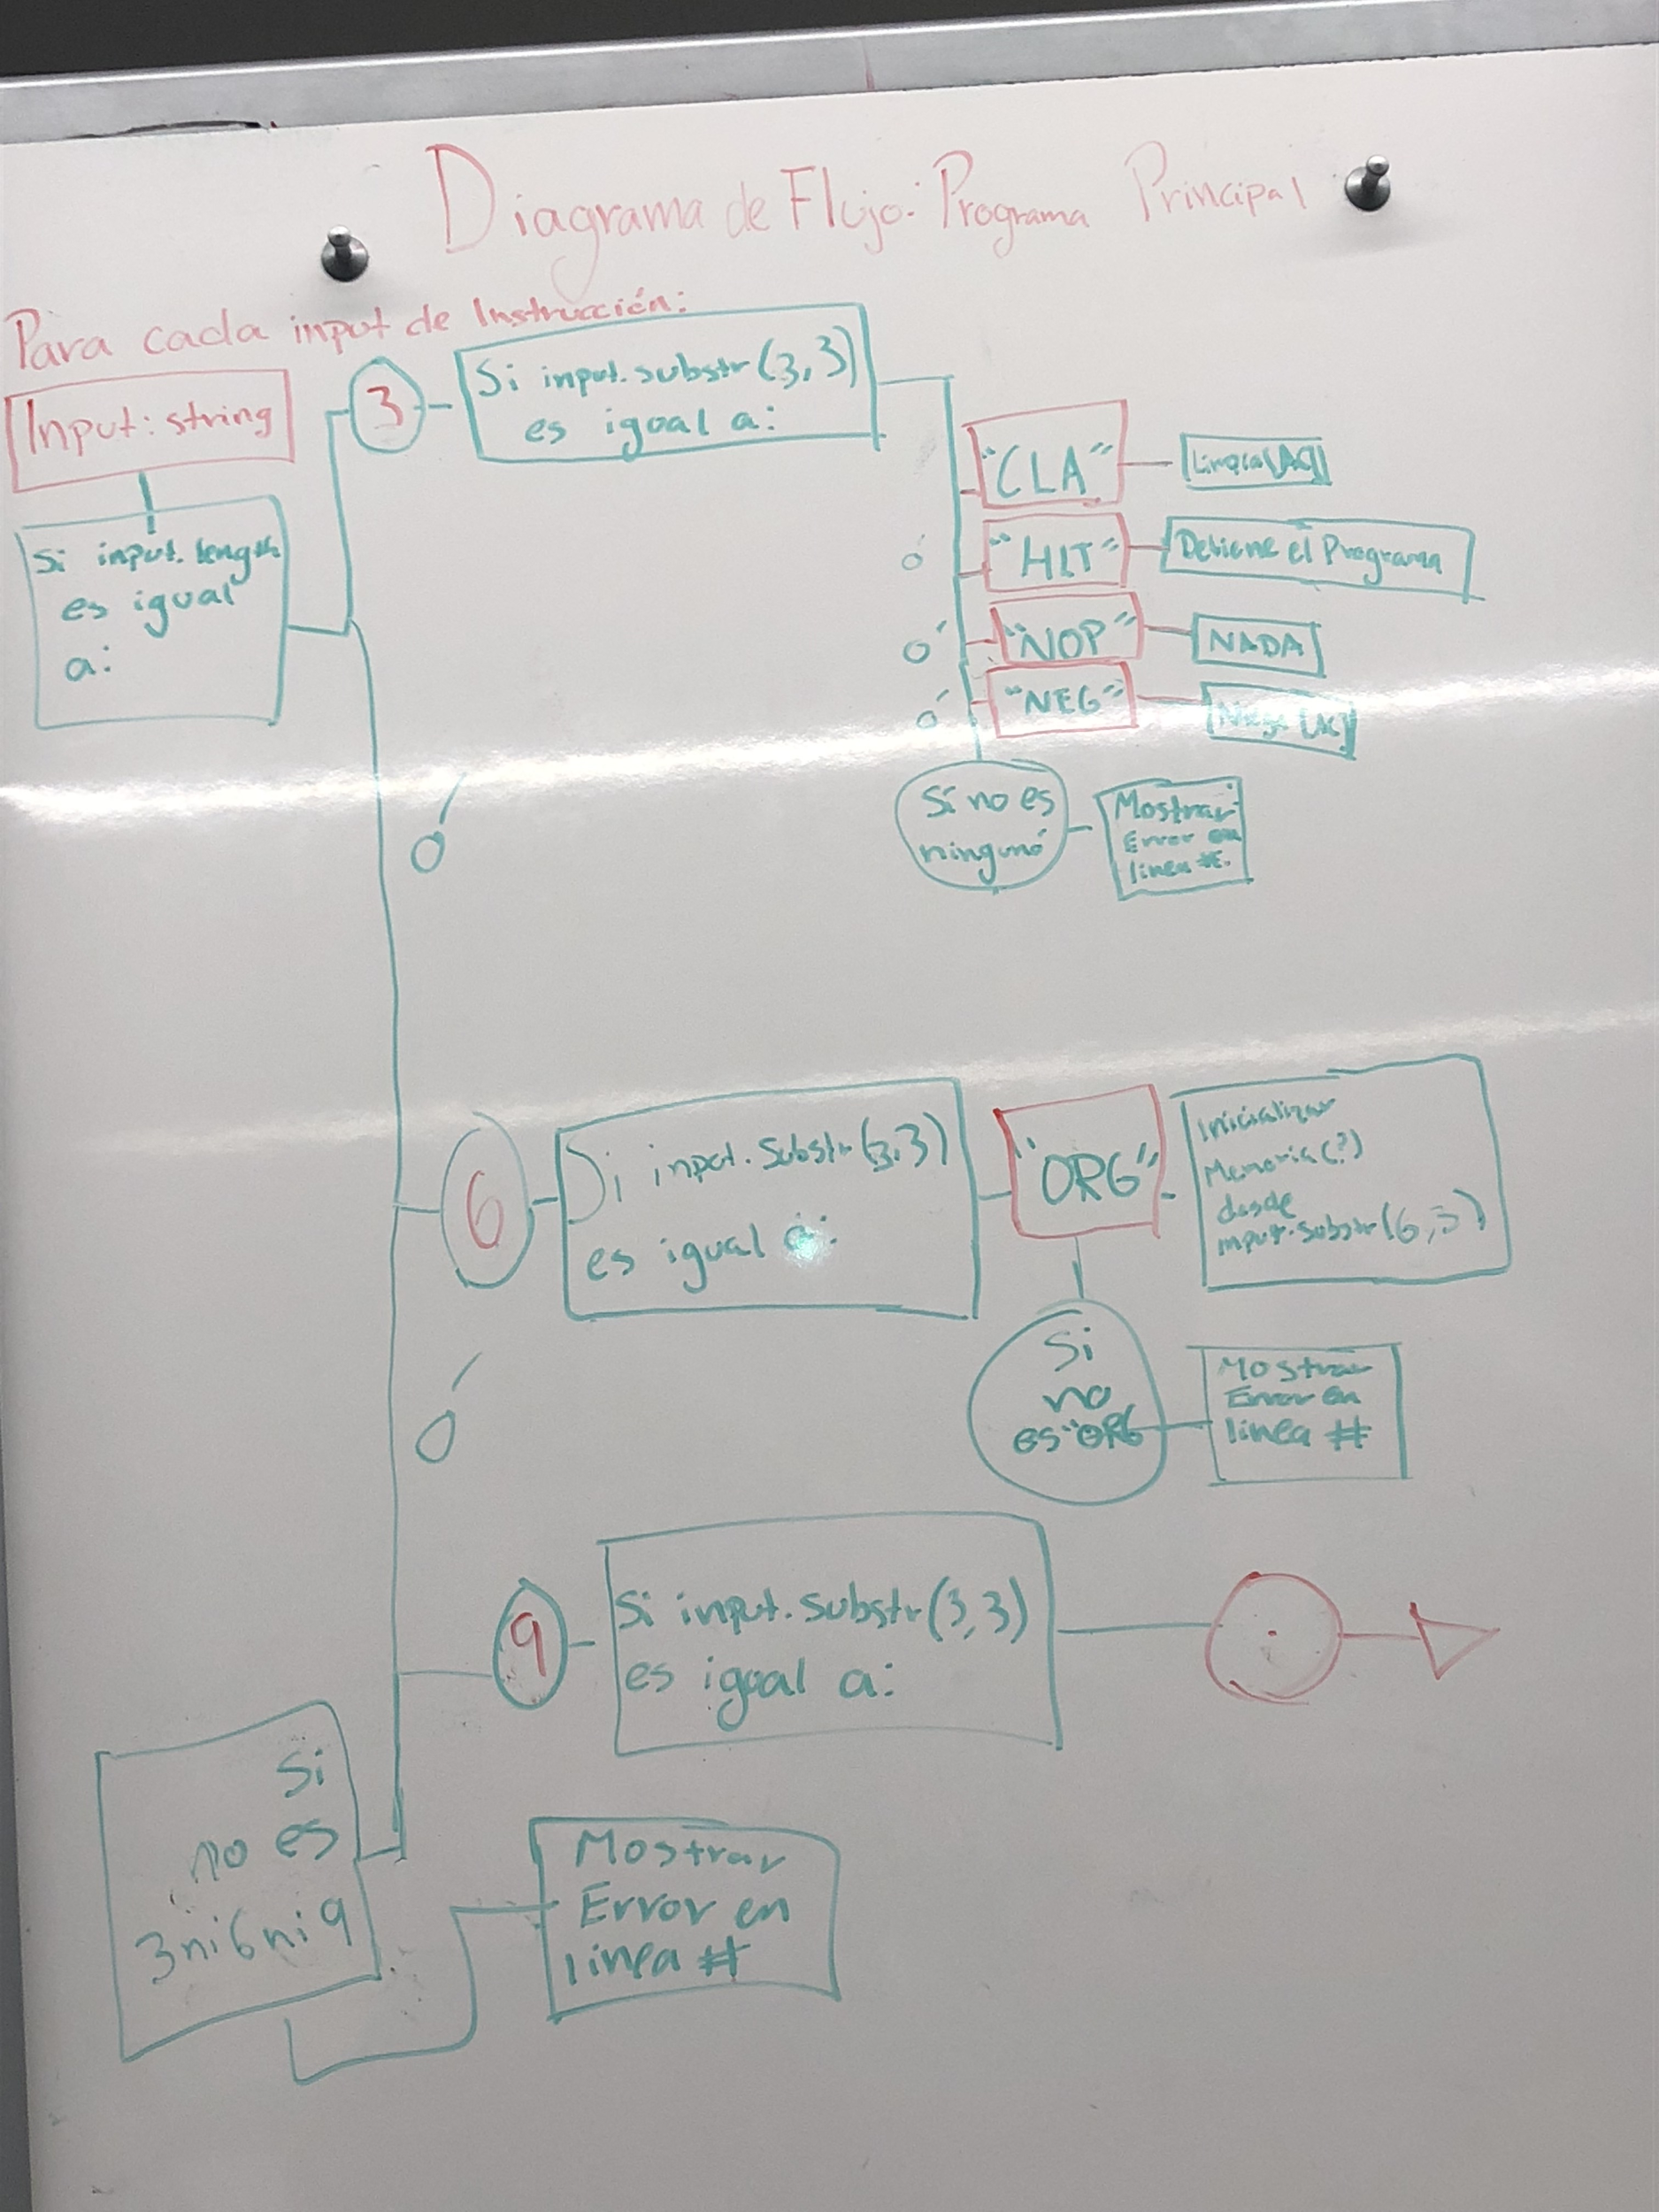 Diagrama de Flujo: Programa Principal
Para cada input de Instrucción:
Input: string
Si input.length
es igual
a:
3
Si input.substr(3,3)
es igual a:
"CLA"
ó
"HLT"
Detiene el Programa
ó
"NOP"
NADA
ó
"NEG"
Si no es
ninguno
Mostrar
Error en
linea #.
ó
6
Si input.substr(3,3)
es igual a:
"ORG"
Inicializar
Memoria(?)
desde
input.substr(6,3)
Si
no
es "ORG
Mostrar
Error en
linea #
ó
9
Si input.substr(3,3)
es igual a:
Si
no es
3 ni 6 ni 9
Mostrar
Error en
linea #